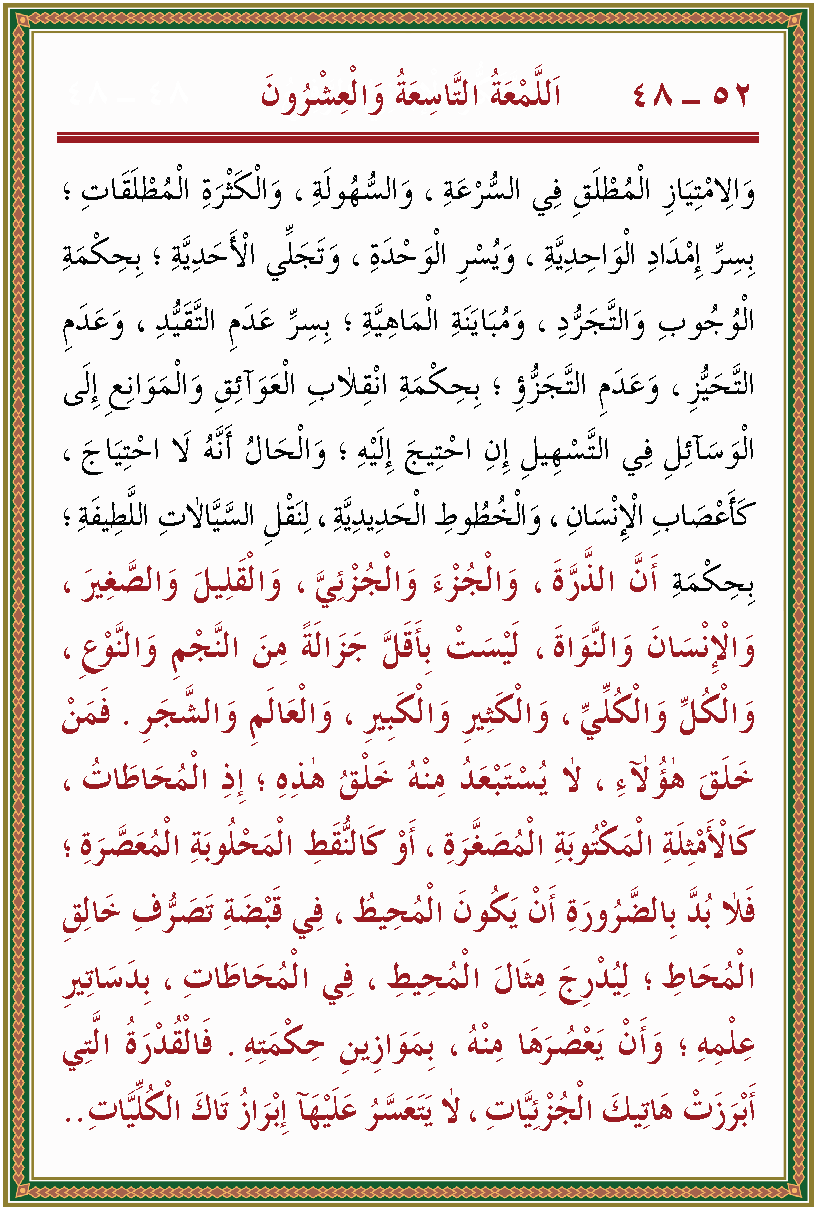 ٥٢ ــ ٤٨ اَللَّمْعَةُ التَّاسِعَةُ وَالْعِشْرُونَ
وَالِامْتِيَازِ الْمُطْلَقِ فِي السُّرْعَةِ ، وَالسُّهُولَةِ ، وَالْكَثْرَةِ الْمُطْلَقَاتِ ؛
بِسِرِّ إِمْدَادِ الْوَاحِدِيَّةِ ، وَيُسْرِ الْوَحْدَةِ ، وَتَجَلِّي الْأَحَدِيَّةِ ؛ بِحِكْمَةِ
الْوُجُوبِ وَالتَّجَرُّدِ ، وَمُبَايَنَةِ الْمَاهِيَّةِ ؛ بِسِرِّ عَدَمِ التَّقَيُّدِ ، وَعَدَمِ
التَّحَيُّزِ ، وَعَدَمِ التَّجَزُّؤِ ؛ بِحِكْمَةِ انْقِلَابِ الْعَوَآئِقِ وَالْمَوَانِعِ إِلَى
الْوَسَآئِلِ فِي التَّسْهِيلِ إِنِ احْتِيجَ إِلَيْهِ ؛ وَالْحَالُ أَنَّهُ لَا احْتِيَاجَ ،
كَأَعْصَابِ الْإِنْسَانِ ، وَالْخُطُوطِ الْحَدِيدِيَّةِ ، لِنَقْلِ السَّيَّالَاتِ اللَّطِيفَةِ ؛
بِحِكْمَةِ أَنَّ الذَّرَّةَ ، وَالْجُزْءَ وَالْجُزْئِيَّ ، وَالْقَلِيلَ وَالصَّغِيرَ ،
وَالْإِنْسَانَ وَالنَّوَاةَ ، لَيْسَتْ بِأَقَلَّ جَزَالَةً مِنَ النَّجْمِ وَالنَّوْعِ ،
وَالْكُلِّ وَالْكُلِّيِّ ، وَالْكَثِيرِ وَالْكَبِيرِ ، وَالْعَالَمِ وَالشَّجَرِ . فَمَنْ
خَلَقَ هٰؤُلَآءِ ، لَا يُسْتَبْعَدُ مِنْهُ خَلْقُ هٰذِهِ ؛ إِذِ الْمُحَاطَاتُ ،
كَالْأَمْثِلَةِ الْمَكْتُوبَةِ الْمُصَغَّرَةِ ، أَوْ كَالنُّقَطِ الْمَحْلُوبَةِ الْمُعَصَّرَةِ ؛
فَلَا بُدَّ بِالضَّرُورَةِ أَنْ يَكُونَ الْمُحِيطُ ، فِي قَبْضَةِ تَصَرُّفِ خَالِقِ
الْمُحَاطِ ؛ لِيُدْرِجَ مِثَالَ الْمُحِيطِ ، فِي الْمُحَاطَاتِ ، بِدَسَاتِيرِ
عِلْمِهِ ؛ وَأَنْ يَعْصُرَهَا مِنْهُ ، بِمَوَازِينِ حِكْمَتِهِ . فَالْقُدْرَةُ الَّتِي
أَبْرَزَتْ هَاتِيكَ الْجُزْئِيَّاتِ ، لَا يَتَعَسَّرُ عَلَيْهَآ إِبْرَازُ تَاكَ الْكُلِّيَّاتِ..